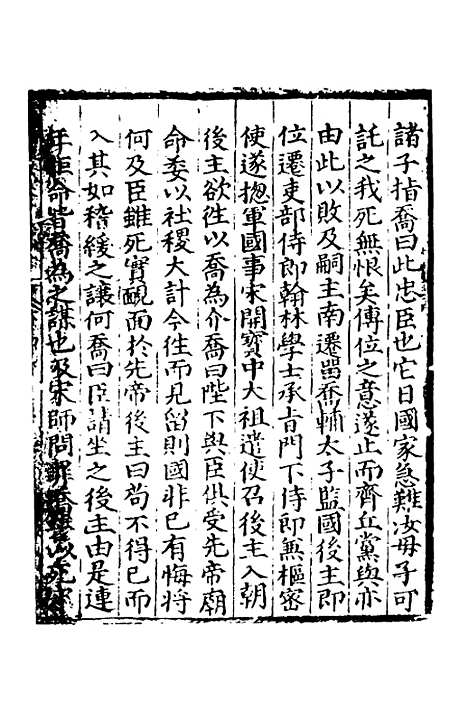 諸子指喬曰此忠臣也它日國家急難汝母子可
託之我死無恨矣傳位之意遂止而齊丘黨與亦
由此以敗及嗣主南遷畱喬輔太子監國後主即
位遷吏部侍郎翰林學士承旨門下侍郎兼樞密
使遂揔軍國事宋開寳中大祖遣使召後主入朝
後主欲徃以喬為介喬曰陛下與臣俱受先帝顧
命委以社稷大計今徃而見留則國非已有悔將
何及臣雖死實靦面於先帝後主曰苟不得已而
入其如稽緩之讓何喬曰臣請坐之後主由是連
年拒命皆喬為之謀也及宋師問罪喬以死